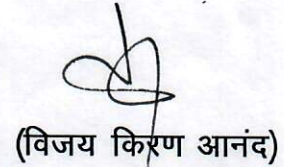 (विजय किरण आनंद)